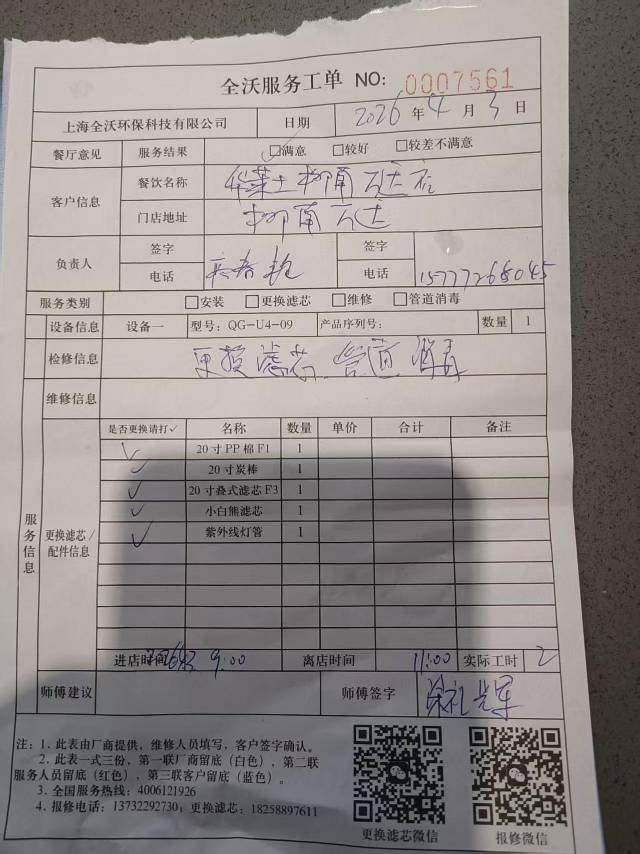 全沃服务工单 NO: 0007561
上海全沃环保科技有限公司 日期 2026 年 4 月 3 日
餐厅意见 服务结果 ☑满意 □较好 □较差不满意
客户信息 餐饮名称 华莱士柳南万达店
门店地址 柳南万达
负责人 签字 签字
电话 电话 15777268045
服务类别 □安装 □更换滤芯 □维修 □管道消毒
设备信息 设备一 型号: QG-U4-09 产品序列号: 数量 1
检修信息 更换滤芯、管道消毒
维修信息
服务信息
更换滤芯/配件信息
是否更换请打✓ 名称 数量 单价 合计 备注
✓ 20寸PP棉F1 1
✓ 20寸炭棒 1
✓ 20寸叠式滤芯F3 1
✓ 小白熊滤芯 1
✓ 紫外线灯管 1
进店时间 9:00 离店时间 11:00 实际工时 2
师傅建议 师傅签字
注: 1. 此表由厂商提供, 维修人员填写, 客户签字确认。
2. 此表一式三份, 第一联厂商留底(白色), 第二联
服务人员留底(红色), 第三联客户留底(蓝色)。
3. 全国服务热线: 4006121926
4. 报修电话: 13732292730; 更换滤芯: 18258897611
更换滤芯微信 报修微信